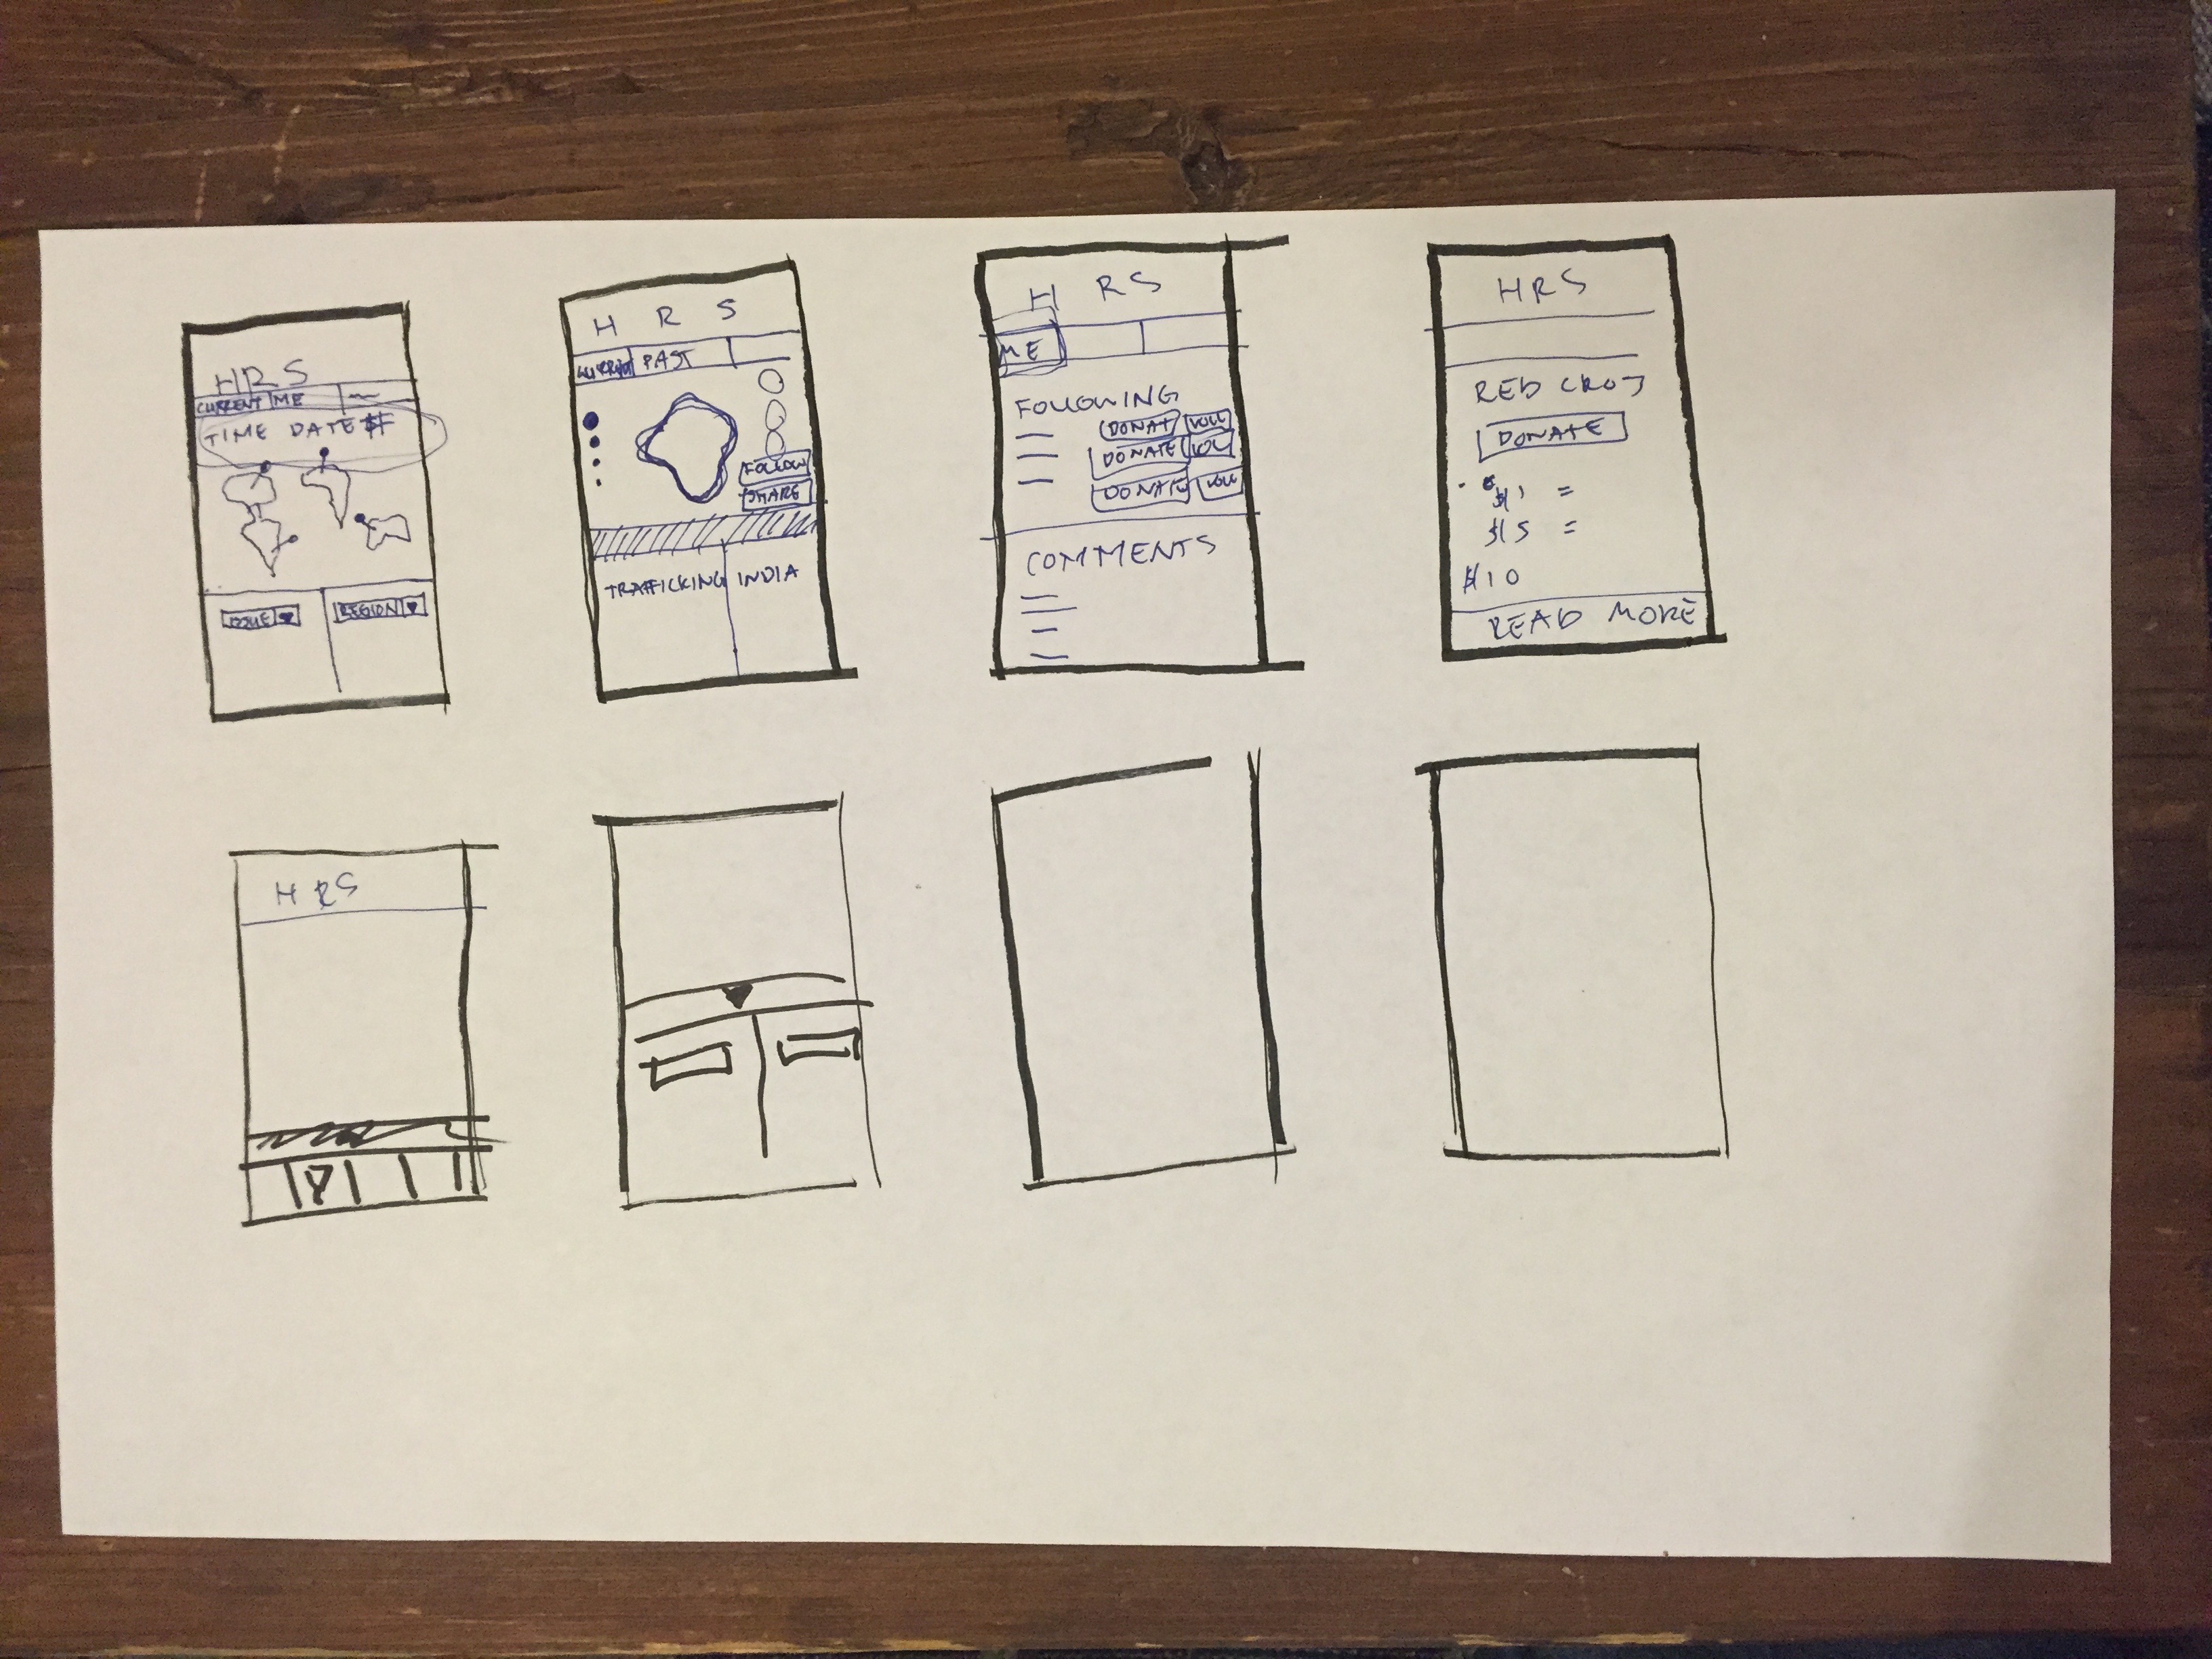 HRS
CURRENT ME
TIME DATE #
ISSUE REGION
H R S
CURRENT PAST
FOLLOW
SHARE
TRAFFICKING INDIA
H RS
ME
FOLLOWING
DONAT VOLL
DONATE VOL
DONATE VOLL
COMMENTS
HRS
RED CROS
DONATE
$1 =
$15 =
$10
READ MORE
HRS